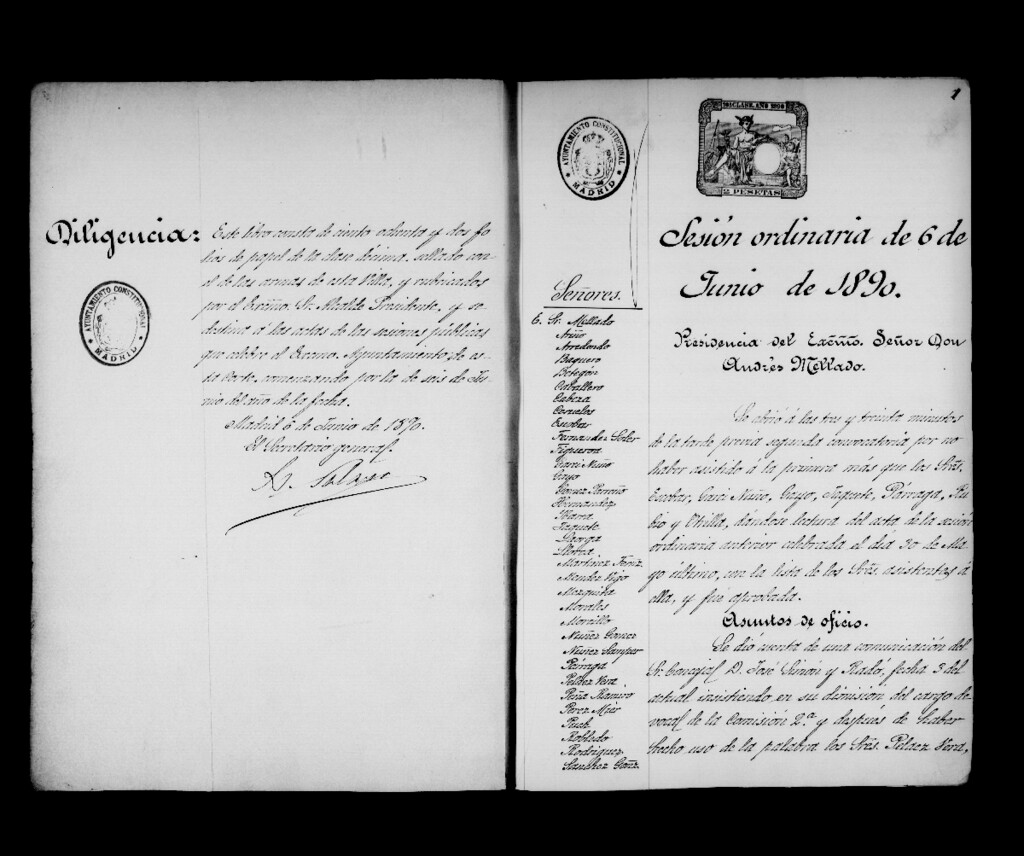 Diligencia:
Este libro consta de ciento ochenta y dos fo
lios de papel de la clase décima, sellado con
el de las armas de esta Villa, y rubricados
por el Excmo. Sr. Alcalde Presidente, y se
destina a las actas de las sesiones públicas
que celebre el Excmo. Ayuntamiento de es-
ta Corte, comenzando por la de seis de Ju-
nio del año de la fecha.
Madrid 6 de Junio de 1890.
El Secretario general,
AYUNTAMIENTO CONSTITUCIONAL
MADRID
1
AYUNTAMIENTO CONSTITUCIONAL
MADRID
10ª CLASE, AÑO 1890
2 PESETAS
Señores.
E. Sr. Mellado
Ariño
Arredondo
Baguero
Botegón
Caballero
Cabeza
Cesuelos
Escobar
Fernandez Soler
Figueroa
Garci Nuño
Gayo
Gomez Parreño
Hernandez
Ibarra
Jaquete
Lloren
Martinez Fernz.
Mendez Vigo
Mezquita
Morales
Morcillo
Nuñez Gomez
Nuñez Samper
Párraga
Pelaez Vera
Peña Ramiro
Perez Mier
Puch
Robledo
Rodriguez
Sanchez Gonz.
Sesión ordinaria de 6 de
Junio de 1890.
Presidencia del Excmo. Señor Don
Andrés Mellado.
Se abrió á las tres y treinta minutos
de la tarde previa segunda convocatoria por no
haber asistido á la primera más que los Srs.
Escobar, Garci Nuño, Gayo, Jaquete, Párraga, Ru-
bio y Chilla, dándose lectura del acta de la sesión
ordinaria anterior celebrada el día 30 de Ma-
yo último, con la lista de los Srs. asistentes á
ella, y fué aprobada.
Asuntos de oficio.
Se dió cuenta de una comunicación del
Sr. Concejal D. José Simón y Radó, fecha 3 del
actual insistiendo en su dimisión del cargo de
vocal de la Comisión 2.ª y después de haber
hecho uso de la palabra los Srs. Pelaez Vera,